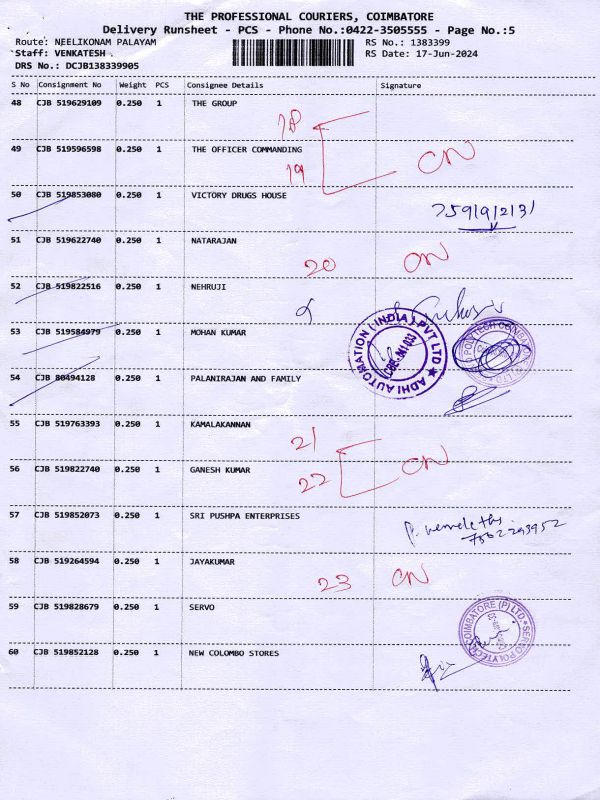 THE PROFESSIONAL COURIERS, COIMBATORE
Delivery Runsheet - PCS - Phone No.:0422-3505555 - Page No.:5
Route: NEELIKONAM PALAYAM
RS No.: 1383399
Staff: VENKATESH .
RS Date: 17-Jun-2024
DRS No.: DCJB138339905
S No Consignment No Weight PCS Consignee Details Signature
48 CJB 519629109 0.250 1 THE GROUP
18
49 CJB 519596598 0.250 1 THE OFFICER COMMANDING
CN
19
50 CJB 519853080 0.250 1 VICTORY DRUGS HOUSE
51 CJB 519622740 0.250 1 NATARAJAN
20 CN
52 CJB 519822516 0.250 1 NEHRUJI
53 CJB 519584979 0.250 1 MOHAN KUMAR
ADHI AUTOMATION (INDIA) PVT LTD ★
CBE-641 033
54 CJB 80494128 0.250 1 PALANIRAJAN AND FAMILY
55 CJB 519763393 0.250 1 KAMALAKANNAN
21
56 CJB 519822740 0.250 1 GANESH KUMAR
22 CN
57 CJB 519852073 0.250 1 SRI PUSHPA ENTERPRISES
58 CJB 519264594 0.250 1 JAYAKUMAR
23 CN
59 CJB 519828679 0.250 1 SERVO
SERVO POLYTECH COIMBATORE (P) LTD
60 CJB 519852128 0.250 1 NEW COLOMBO STORES